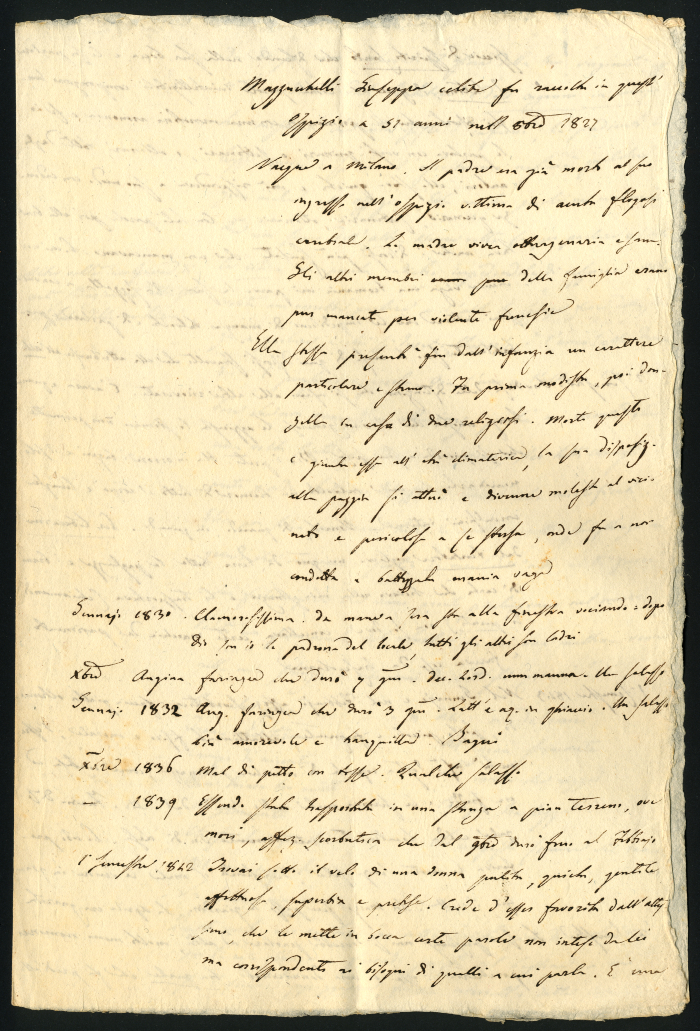 Mazzucchelli Giuseppa celibe fu raccolta in quest'
Ospizio a 51 anni nell' 8bre 1827
Nacque a Milano. Il padre era già morto al suo
ingresso nell'ospizio vittima di acuta flogosi
cerebrale. La madre vivea ottuagenaria e sana.
Gli altri membri della famiglia erano
pur mancati per violente
Ella stessa presentò fin dall'infanzia un carattere
particolare e strano. Fu prima modista, poi don-
zella in casa di due religiosi. Morti questi
e giunta essa all' età climaterica, la sua disposiz.
alla pazzia si attuò e divenne molesta al vici-
nato e pericolosa a se stessa, onde fu a noi
condotta a mania vaga
Gennajo 1830. Clamorosissima. Da mane a sera sta alla finestra vociando: dopo
Dio son io la padrona del locale tutti gli altri son ladri
Xbre Angina faringea che durò 7 gni. Dec. Lord. cum manna. Un salasso
Gennajo 1832 Ang. faringea che durò 3 gni. Latt e aq. in ghiaccio. Un salasso
Più amorevole e tranquilla. Bagni
Xbre 1836 Mal di petto con tosse. Qualche salasso
— 1839 Essendo stata trasportata in una stanza a pian terreno, ove
morì, affez. scorbutica che dal 9bre durò fino al Febbrajo
1° Semestre 1842 Trovai sotto il velo di una donna pulita, quieta, gentile
affettuosa, superbia e pretese. Crede d'esser favorita dall'altis
simo, che le mette in bocca certe parole non intese da lei
ma corrispondenti ai bisogni di quelli a cui parla. È una